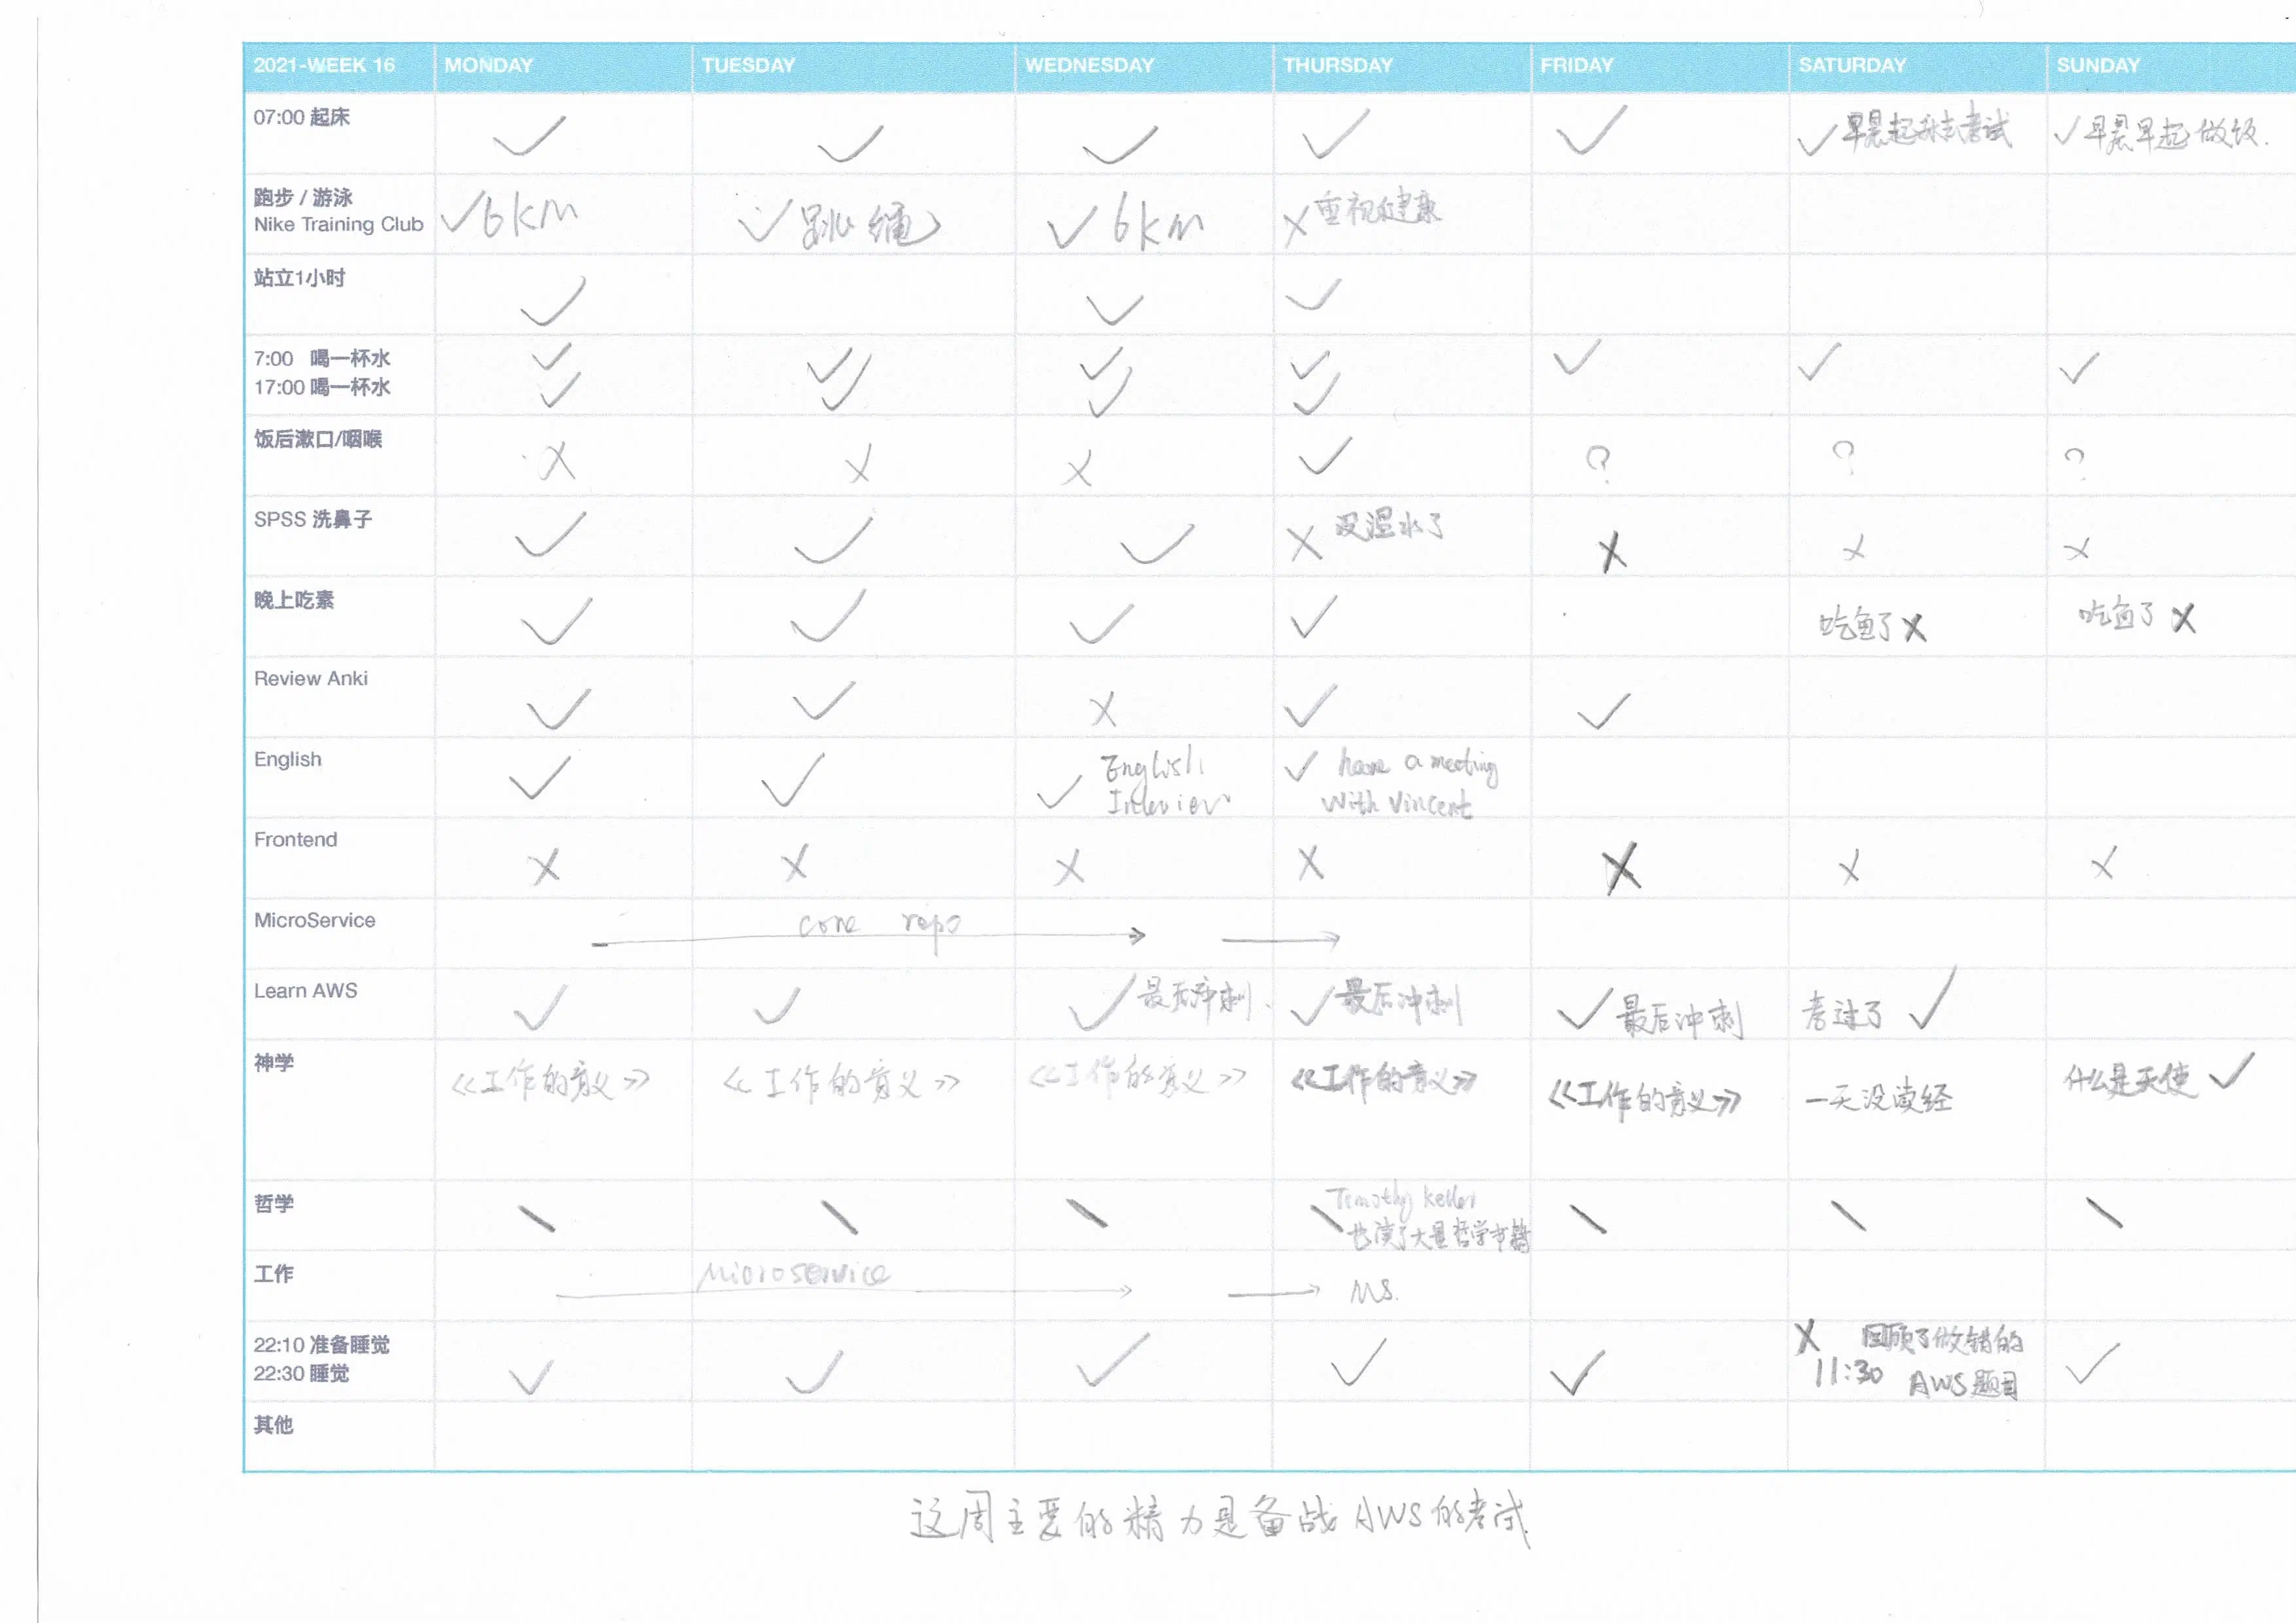 2021-WEEK 16 MONDAY TUESDAY WEDNESDAY THURSDAY FRIDAY SATURDAY SUNDAY
07:00 起床 ✓ ✓ ✓ ✓ ✓ ✓早晨起来去考试 ✓早晨早起做饭.
跑步 / 游泳
Nike Training Club ✓6km ✓跳绳 ✓6km ×重视健康
站立1小时 ✓ ✓ ✓
7:00 喝一杯水 ✓ ✓ ✓ ✓ ✓ ✓ ✓
17:00 喝一杯水 ✓ ✓ ✓ ✓
饭后漱口/咽喉 × × × ✓ ? ? ?
SPSS 洗鼻子 ✓ ✓ ✓ × 没温水了 × × ×
晚上吃素 ✓ ✓ ✓ ✓ 吃鱼了× 吃鱼了×
Review Anki ✓ ✓ × ✓ ✓
English ✓ ✓ ✓ English Interview ✓ have a meeting with Vincent
Frontend × × × × × × ×
MicroService core repo
Learn AWS ✓ ✓ ✓最后冲刺. ✓最后冲刺 ✓最后冲刺 考过了✓
神学 《工作的意义》 《工作的意义》 《工作的意义》 《工作的意义》 《工作的意义》 一天没读经 什么是天使✓
哲学 \ \ \ \ Timothy Keller 也读了大量哲学书籍 \ \ \
工作 Microservice → → MS.
22:10 准备睡觉
22:30 睡觉 ✓ ✓ ✓ ✓ ✓ × 11:30 回顾了做错的AWS题目 ✓
其他
这周主要的精力是备战AWS的考试